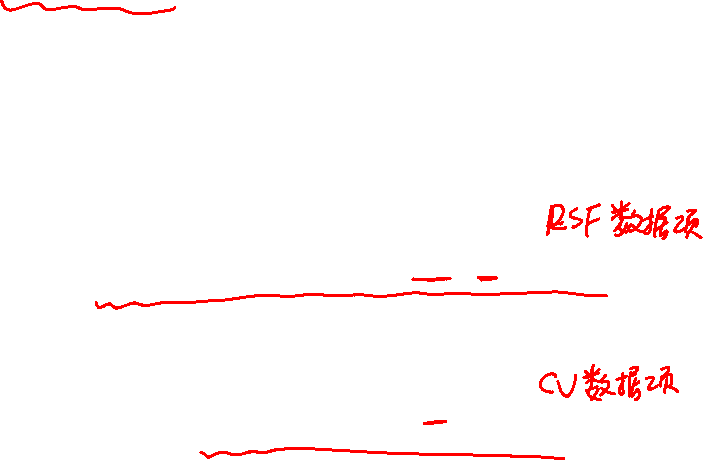 RSF数据项
CV数据项